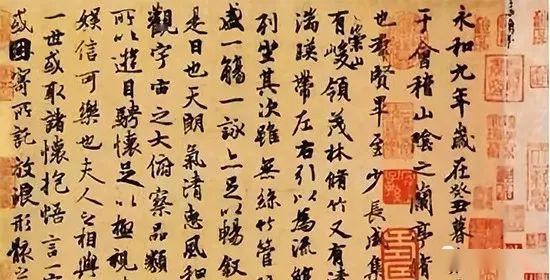 永和九年歲在癸丑暮
于會稽山陰之蘭亭脩
也羣賢畢至少長咸集
有崇山峻領茂林脩竹又有清
湍暎帶左右引以為流觴
列坐其次雖無絲竹管弦
盛一觴一詠亦足以暢敘
是日也天朗氣清惠風和
觀宇宙之大俯察品類
所以遊目騁懷足以極視
娛信可樂也夫人之相與
一世或取諸懷抱悟言一
或因寄所託放浪形骸